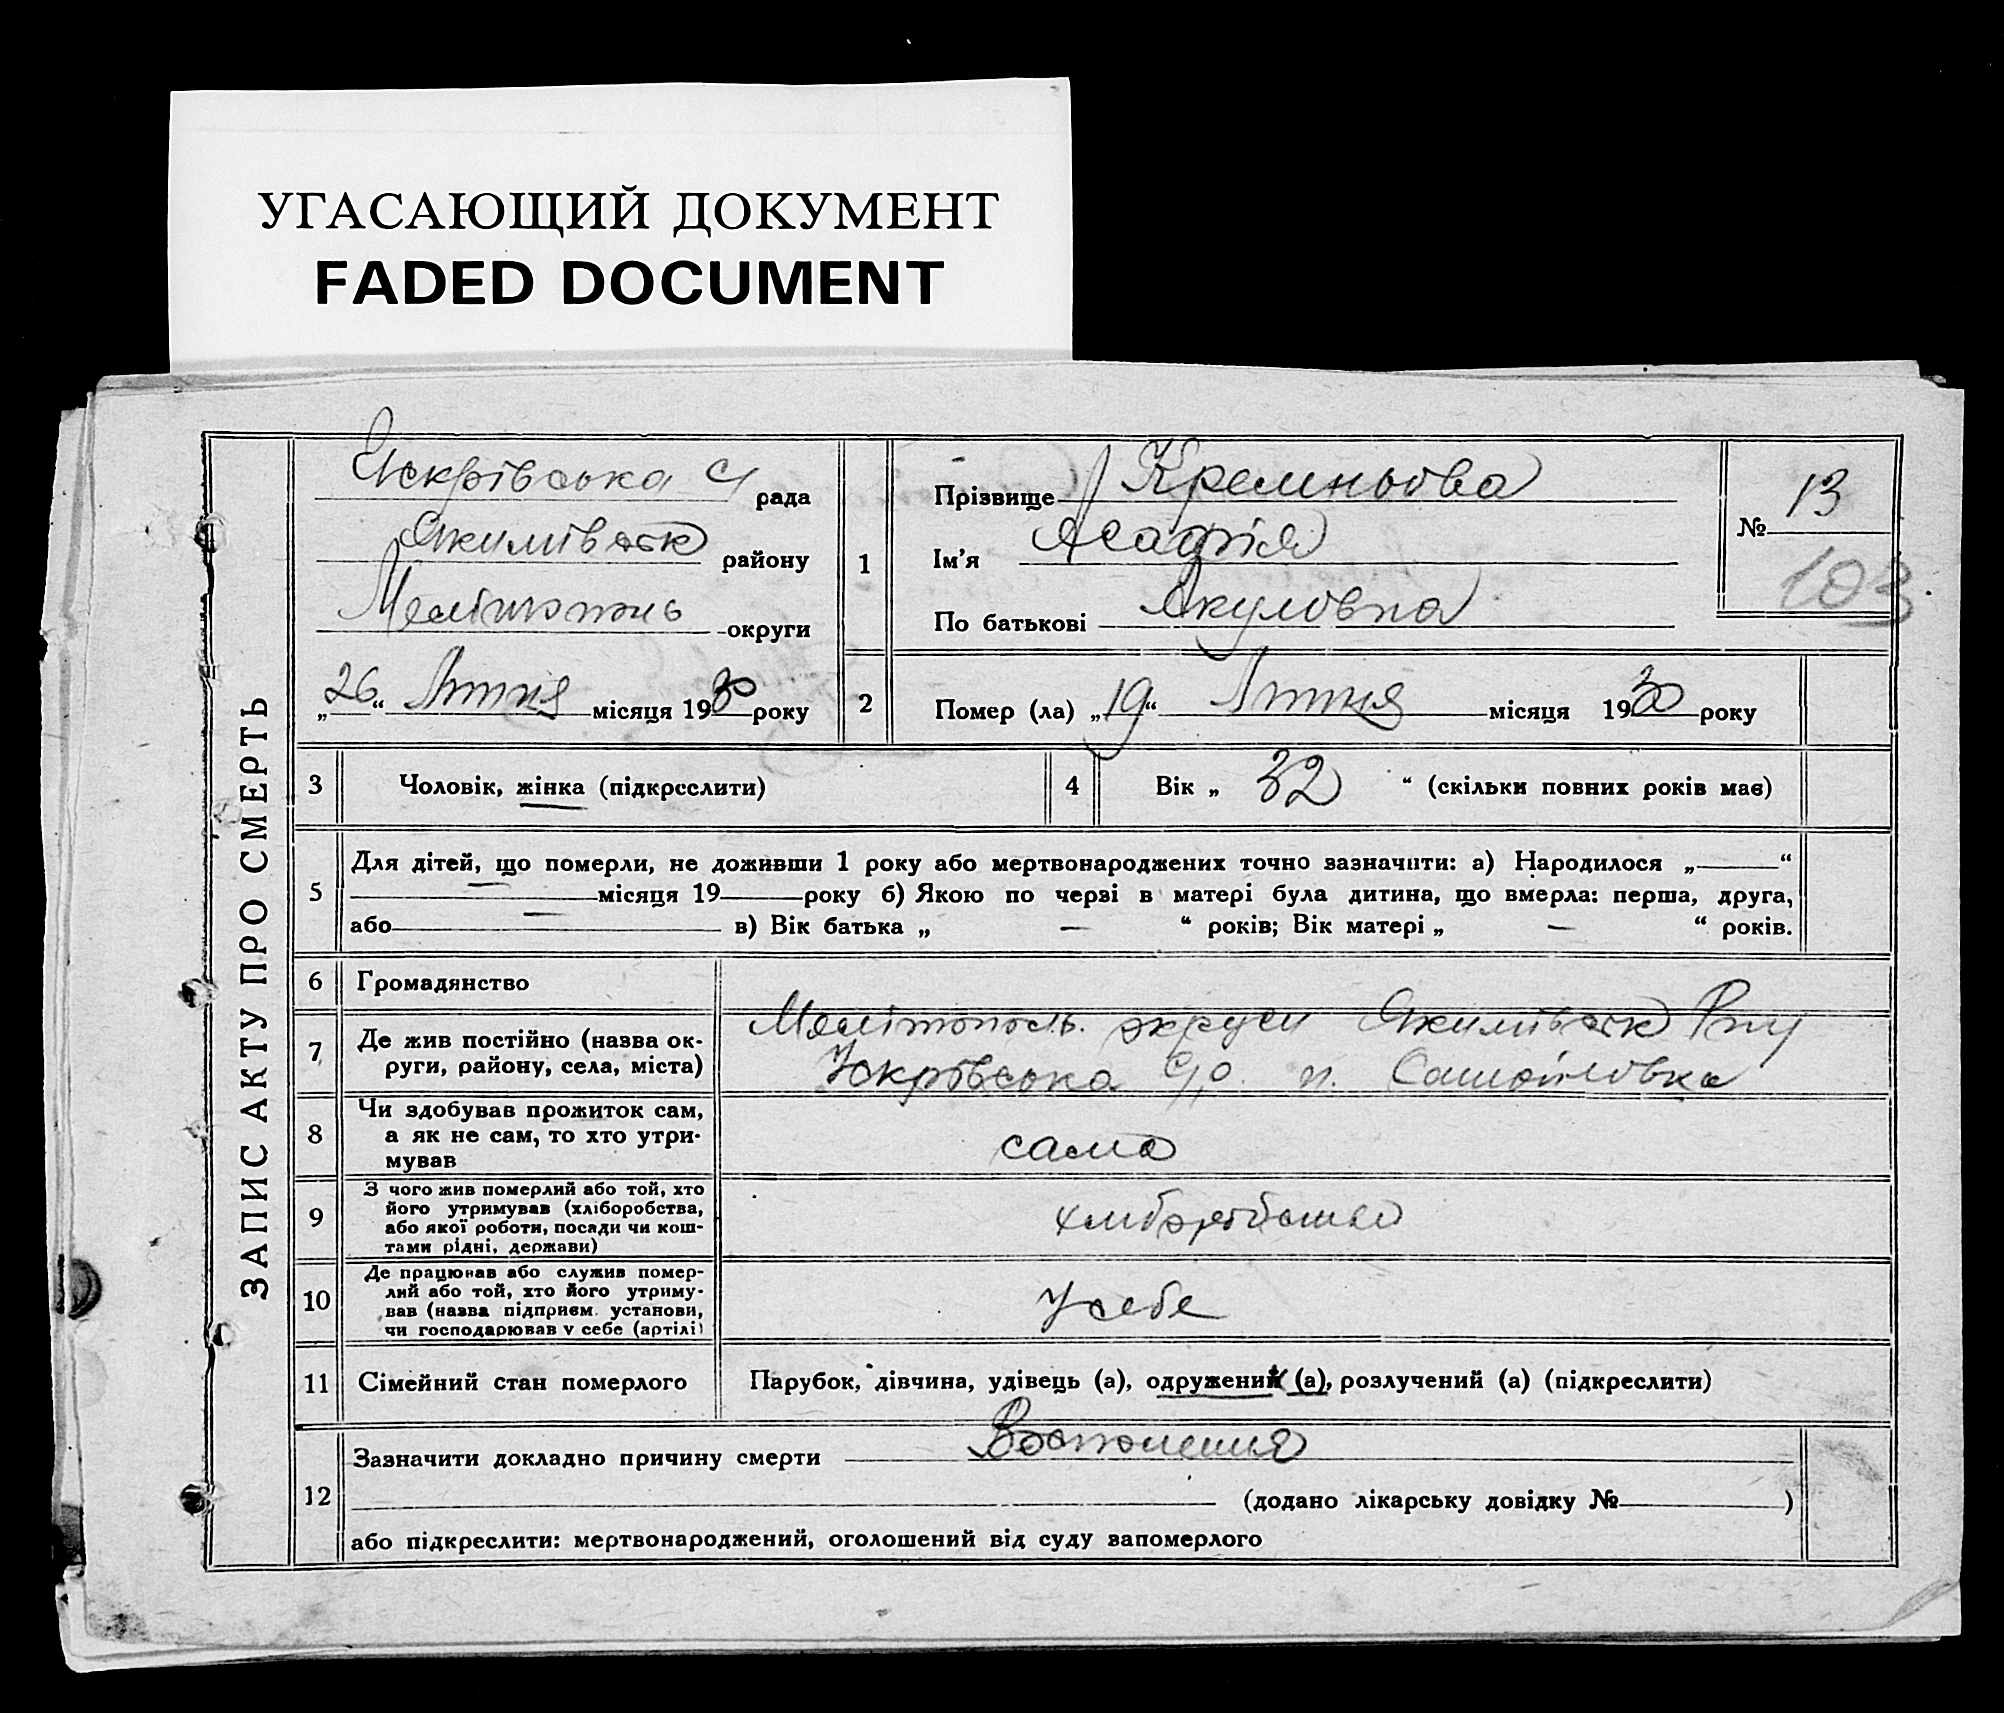 УГАСАЮЩИЙ ДОКУМЕНТ
FADED DOCUMENT
ЗАПИС АКТУ ПРО СМЕРТЬ
Іскрівська с/ рада
Якимівськ району
Мелітополь округи
„26“ Літня місяця 1930 року
1
Прізвище Кремньова
Ім'я Агафія
По батькові Акуловна
№ 13
103
2
Помер (ла) „19“ Літня місяця 1930 року
3 Чоловік, жінка (підкреслити)
4 Вік „ 32 “ (скільки повних років має)
5
Для дітей, що померли, не доживши 1 року або мертвонароджених точно зазначити: а) Народилося „ — “
— місяця 19 року б) Якою по черзі в матері була дитина, що вмерла: перша, друга,
або — в) Вік батька „ — “ років; Вік матері „ — “ років.
6 Громадянство
7 Де жив постійно (назва ок-
руги, району, села, міста)
Мелітополь. округи Якимівськ Р-ну
Іскрівська с/р. п.
8 Чи здобував прожиток сам,
а як не сам, то хто утри-
мував
сама
9 З чого жив померлий або той, хто
його утримував (хліборобства,
або якої роботи, посади чи кош-
тами рідні, держави)
10 Де працював або служив помер-
лий або той, хто його утриму-
вав (назва підприєм. установи,
чи господарював у себе (артілі)
У себе
11 Сімейний стан померлого
Парубок, дівчина, удівець (а), одружений (а), розлучений (а) (підкреслити)
12
Зазначити докладно причину смерти
(додано лікарську довідку № )
або підкреслити: мертвонароджений, оголошений від суду запомерлого